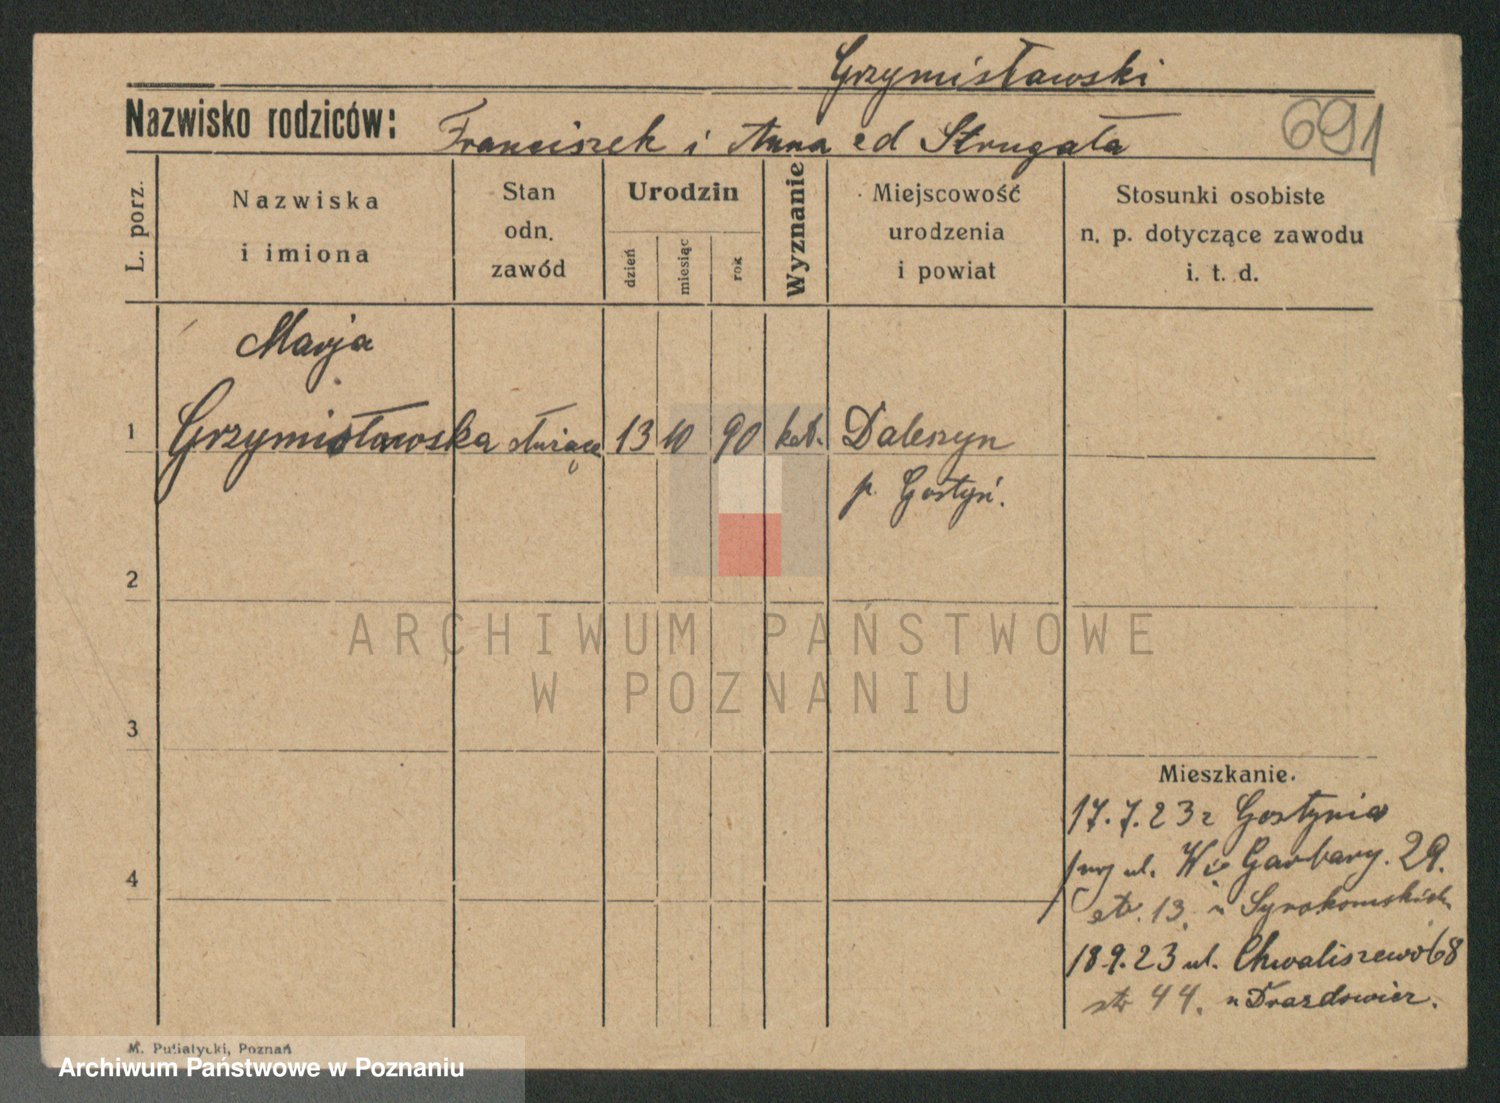 Grzymisławski
Nazwisko rodziców: Franciszek i Anna
Strugała
691
L. porz.
Nazwiska
i imiona
Stan
odn.
zawód
Urodzin
dzień
miesiąc
rok
Wyznanie
Miejscowość
urodzenia
i powiat
Stosunki osobiste
n. p. dotyczące zawodu
i. t. d.
Marja
1 Grzymisławska służąca 13 10 90 kat. Daleszyn
p. Gostyń.
2
3
4
ARCHIWUM PAŃSTWOWE
W POZNANIU
Mieszkanie.
17.7.23 z Gostynia
ul. W. Garbary. 29.
str. 13.
18.9.23 ul. Chwaliszewo 68
str 44.
M. Putiatycki, Poznań
Archiwum Państwowe w Poznaniu